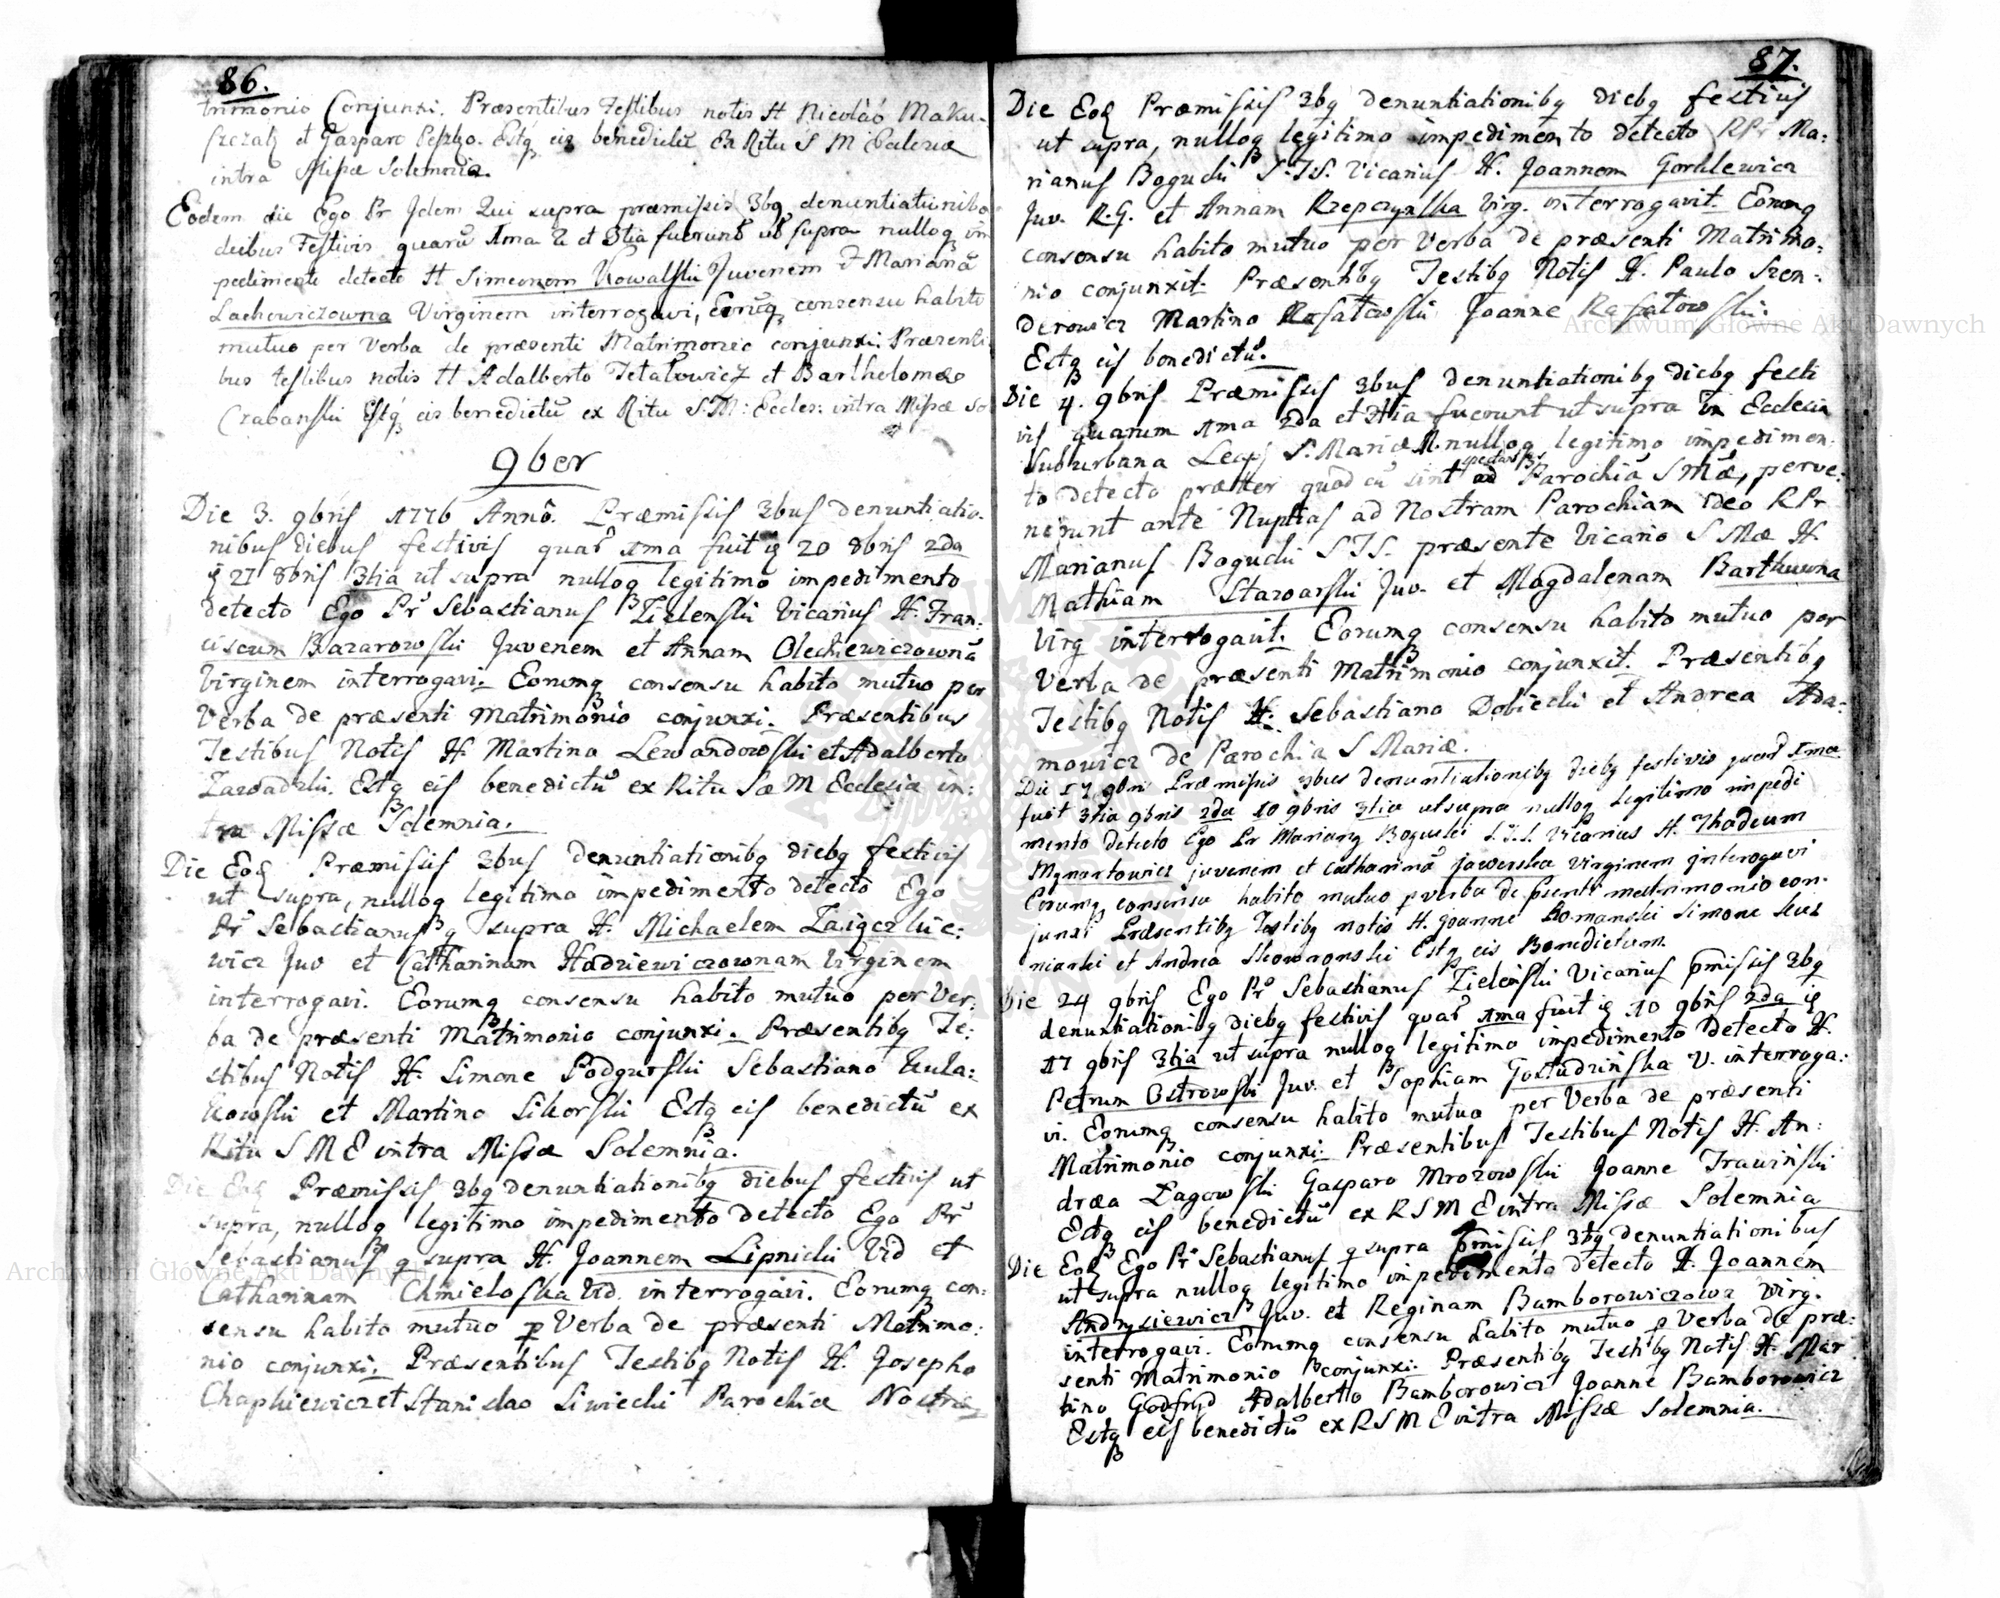 86.
trimonio Conjunxi. Præsentibus Testibus notis H Nicolaó Maku-
szczak et Gasparo Estq eis benedictū Ex Ritu S M Ecclesiæ
intra Missæ Solemnia.
Eodem die Ego Pr Idem Qui supra præmissis 3bq denuntiationibq
diebus Festivis quarū 1ma 2 et 3tia fuerunt ut supra nulloq im
pedimento detecto H Simeonem Kowalski Juvenem & Marianā
Lachowiczowna Virginem interrogavi, Eorūq consensu habito
mutuo per Verba de præsenti Matrimonio conjunxi: Præsenti
bus testibus notis H Adalberto Tetalowicz et Bartholomæo
Czabanski Estq eis benedictū ex Ritu S.M: Eccles: intra Missæ So
9ber
Die 3. 9bris 1776 Annô. Præmissis 3bus denuntiatio-
nibus diebus festivis quar 1ma fuit q 20 8bris 2da
q 27 8bris 3tia ut supra nulloq legitimo impedimento
detecto Ego Pr Sebastianus Zielenski Vicarius H. Fran:
ciscum Bazarowski Juvenem et Annam Olechiewiczownā
Virginem interrogavi: Eorumq consensu habito mutuo per
Verba de præsenti Matrimonio conjunxi. Præsentibus
Testibus Notis H Martino Lewandowski et Adalberto
Zawadzki. Estq eis benedictū ex Ritu Sæ M Ecclesiæ in:
tra Missæ Solemnia.
Die Eod Præmissis 3bus denuntiationibq diebq festivis
ut supra, nulloq legitimo impedimento detecto Ego
Pr Sebastianus q supra H. Michaelem Zaięczkie:
wicz Juv et Catharinam Hadziewiczownam Virginem
interrogavi. Eorumq consensu habito mutuo per Ver:
ba de præsenti Matrimonio conjunxi. Præsentibq Te:
stibus Notis H. Simone Podgurski Sebastiano Kula:
kowski et Martino Sikorski Estq eis benedictū ex
Ritu S M E intra Missæ Solemnia.
Die Eod Præmissis 3bq denuntiationibq diebus festivis ut
supra, nulloq legitimo impedimento detecto Ego Pr
Sebastianus q supra H. Joannem Lipnicki Vid et
Catharinam Chmieloska Vid. interrogavi. Eorumq con:
sensu habito mutuo p Verba de præsenti Matrimo:
nio conjunxi. Præsentibus Testibq Notis H. Josepho
Chaphiewicz et Stanislao Siwiecki Parochiæ Nostræ
87.
Die Eod Præmissis 3bq denuntiationibq diebq festivis
ut supra, nulloq legitimo impedimento detecto RPr Ma:
rianus Bogucki S.TS. Vicarius H. Joannem Gorklewicz
Juv. R.G. et Annam Rzepczynska Virg. interrogavit Eorumq
consensu habito mutuo per Verba de præsenti Matrimo:
nio conjunxit. Præsentibq Testibq Notis H. Paulo Szen:
derowicz Martino Rafatowski Joanne Rafatowski.
Estq eis benedictū.
Die 4. 9bris Præmissis 3bus denuntiationibq diebq festi
vis quarum 1ma 2da et 3tia fuerunt ut supra in Ecclesia
Suburbana S. Mariæ M. nulloq legitimo impedimen:
to detecto præter quod cū sint ad Parochiā S Mæ, perve:
nerunt ante Nuptias ad Nostram Parochiam ideo RPr
Marianus Bogucki STS. præsente Vicario S Mæ H.
Mathiam Starowski Juv. et Magdalenam Barthuwna
Virg interrogavit. Eorumq consensu habito mutuo per
Verba de præsenti Matrimonio conjunxit. Præsentibq
Testibq Notis H. Sebastiano Dobiecki et Andrea Ada:
mowicz de Parochia S Mariæ.
Die 17 9bris Præmissis 3bus denuntiationibq diebq festivis quar 1ma
fuit 3tia 9bris 2da 10 9bris 3tia ut supra nulloq legitimo impedi
mento detecto Ego Pr Marianq Bogucki S.T.S. Vicarius H. Thadeum
Mynartowicz juvenem et Catharinā jaworska virginem jnterogavi
Eorumq consensu habito mutuo p verba de psenti matrimonio con-
junxi Præsentibq Testibq notis H. joanne Romanski Simone Sus
niarski et Andrea Skowronski Estq eis Benedictum.
Die 24 9bris Ego Pr Sebastianus Zielenski Vicarius pmissis 3bq
denuntiationibq diebq festivis quar 1ma fuit q 10 9bris 2da q
17 9bris 3tia ut supra nulloq legitimo impedimento detecto H.
Petrum Ostrowski Juv. et Sophiam Gostudzinska V. interroga:
vi. Eorumq consensu habito mutuo per Verba de præsenti
Matrimonio conjunxi: Præsentibus Testibus Notis H. An:
dræa Łagowski Gasparo Mrozowski Joanne Trawinski
Estq eis benedictū ex R S M E intra Missæ Solemnia
Die Eod Ego Pr Sebastianus q supra pmissis 3bq denuntiationibus
ut supra nulloq legitimo impedimento detecto H. Joannem
Andrysiewicz Juv. et Reginam Bamborowiczowa Virg.
interrogavi. Eorumq consensu habito mutuo p Verba de præ:
senti Matrimonio conjunxi. Præsentibq Testibq Notis H. Mar
tino Godfryd Adalberto Bamborowicz Joanne Bamborowicz
Estq eis benedictū ex R S M E intra Missæ Solemnia.
Archiwum Główne Akt Dawnych
Archiwum Główne Akt Dawnych